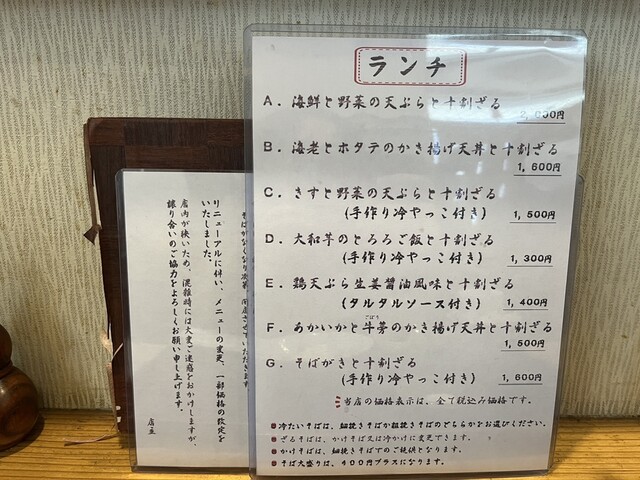 ランチ
A. 海鮮と野菜の天ぷらと十割ざる
2,000円
B. 海老とホタテのかき揚げ天丼と十割ざる
1,600円
C. きすと野菜の天ぷらと十割ざる
(手作り冷やっこ付き) 1,500円
D. 大和芋のとろろご飯と十割ざる
(手作り冷やっこ付き) 1,300円
E. 鶏天ぷら生姜醤油風味と十割ざる
(タルタルソース付き) 1,400円
ごぼう
F. あかいかと牛蒡のかき揚げ天丼と十割ざる
1,500円
G. そばがきと十割ざる
(手作り冷やっこ付き) 1,600円
当店の価格表示は、全て税込み価格です。
冷たいそばは、細挽きそばか粗挽きそばのどちらかをお選びください。
ざるそばは、かけそば又は冷かけに変更できます。
かけそばは、細挽きそばでのご提供となります。
そば大盛りは、400円プラスになります。
リニューアルに伴い、メニューの変更、一部価格の改定を
いたしました。
店内が狭いため、混雑時には大変ご迷惑をおかけしますが、
譲り合いのご協力をよろしくお願い申し上げます。
店主